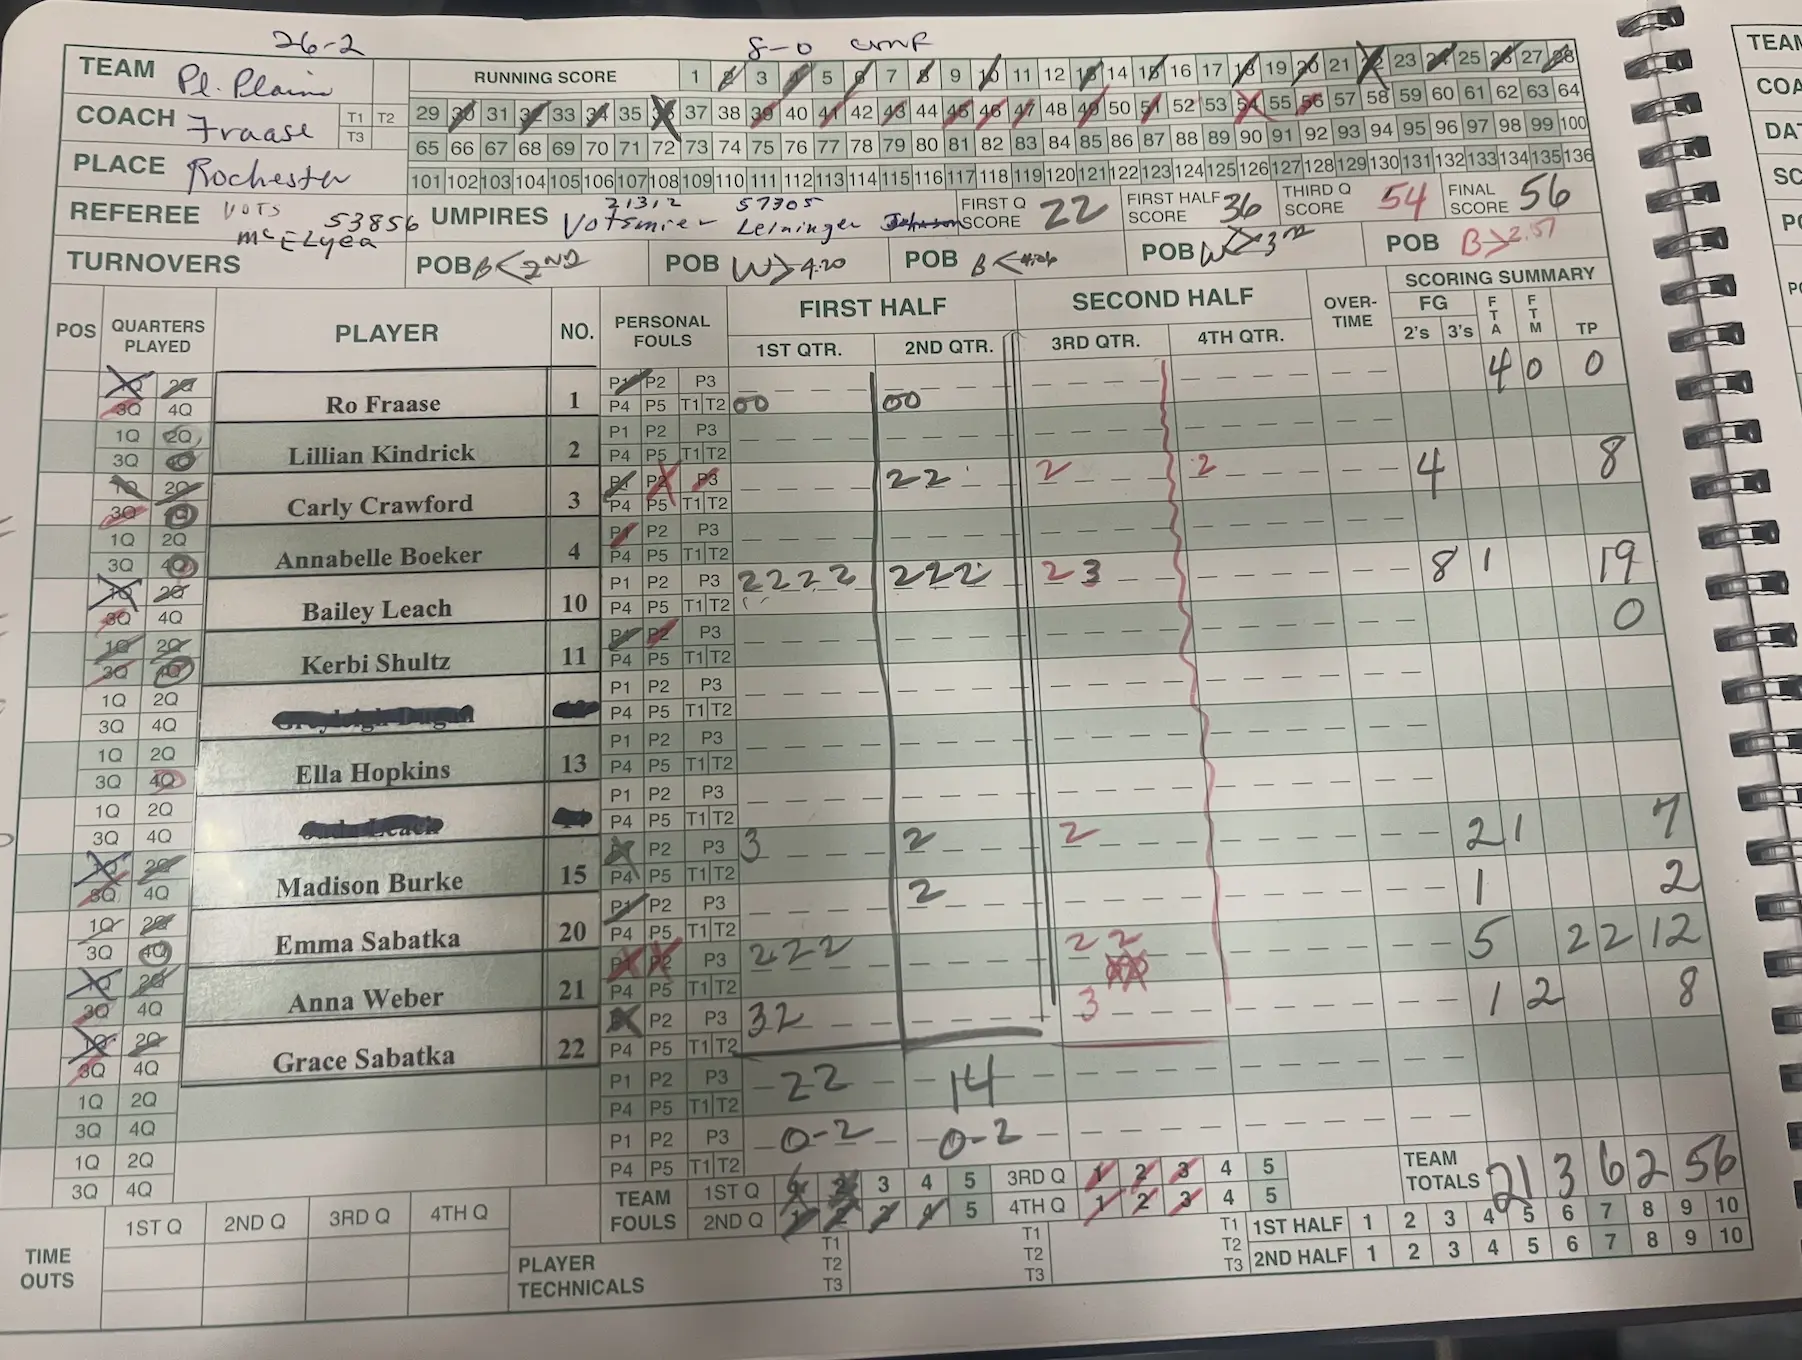 26-2 8-0 conf
TEAM Pl. Plains RUNNING SCORE 1 2 3 4 5 6 7 8 9 10 11 12 13 14 15 16 17 18 19 20 21 22 23 24 25 26 27 28
COACH Fraase T1 T2 T3 29 30 31 32 33 34 35 36 37 38 39 40 41 42 43 44 45 46 47 48 49 50 51 52 53 54 55 56 57 58 59 60 61 62 63 64
65 66 67 68 69 70 71 72 73 74 75 76 77 78 79 80 81 82 83 84 85 86 87 88 89 90 91 92 93 94 95 96 97 98 99 100
PLACE Rochester 101 102 103 104 105 106 107 108 109 110 111 112 113 114 115 116 117 118 119 120 121 122 123 124 125 126 127 128 129 130 131 132 133 134 135 136
REFEREE VOTS 53856 McElyea UMPIRES 21312 Votsmier 57305 Leininger Johnson FIRST Q SCORE 22 FIRST HALF SCORE 36 THIRD Q SCORE 54 FINAL SCORE 56
TURNOVERS POB B< 2ND POB W> 4.20 POB B< 4:06 POB W> 3rd POB B> 2.57
POS QUARTERS PLAYED PLAYER NO. PERSONAL FOULS FIRST HALF SECOND HALF OVER-TIME SCORING SUMMARY
1ST QTR. 2ND QTR. 3RD QTR. 4TH QTR. FG 2's 3's FTA FTM TP
1Q 2Q 3Q 4Q Ro Fraase 1 P1 P2 P3 P4 P5 T1 T2 00 00 4 0 0
1Q 2Q 3Q 4Q Lillian Kindrick 2 P1 P2 P3 P4 P5 T1 T2
1Q 2Q 3Q 4Q Carly Crawford 3 P1 P2 P3 P4 P5 T1 T2 2 2 2 2 4 8
1Q 2Q 3Q 4Q Annabelle Boeker 4 P1 P2 P3 P4 P5 T1 T2
1Q 2Q 3Q 4Q Bailey Leach 10 P1 P2 P3 P4 P5 T1 T2 2 2 2 2 2 2 2 2 3 8 1 19
1Q 2Q 3Q 4Q Kerbi Shultz 11 P1 P2 P3 P4 P5 T1 T2 0
1Q 2Q 3Q 4Q P1 P2 P3 P4 P5 T1 T2
1Q 2Q 3Q 4Q Ella Hopkins 13 P1 P2 P3 P4 P5 T1 T2
1Q 2Q 3Q 4Q P1 P2 P3 P4 P5 T1 T2
1Q 2Q 3Q 4Q Madison Burke 15 P1 P2 P3 P4 P5 T1 T2 3 2 2 2 1 7
1Q 2Q 3Q 4Q Emma Sabatka 20 P1 P2 P3 P4 P5 T1 T2 2 1 2
1Q 2Q 3Q 4Q Anna Weber 21 P1 P2 P3 P4 P5 T1 T2 2 2 2 2 2 5 2 2 12
1Q 2Q 3Q 4Q Grace Sabatka 22 P1 P2 P3 P4 P5 T1 T2 3 2 3 1 2 8
1Q 2Q 3Q 4Q P1 P2 P3 P4 P5 T1 T2 22 14
1Q 2Q 3Q 4Q P1 P2 P3 P4 P5 T1 T2 0-2 0-2
TEAM FOULS 1ST Q 1 2 3 4 5 3RD Q 1 2 3 4 5 TEAM TOTALS 21 3 6 2 56
2ND Q 1 2 3 4 5 4TH Q 1 2 3 4 5
TIME OUTS 1ST Q 2ND Q 3RD Q 4TH Q PLAYER TECHNICALS T1 T2 T3 T1 T2 T3 T1 T2 T3 1ST HALF 1 2 3 4 5 6 7 8 9 10
2ND HALF 1 2 3 4 5 6 7 8 9 10
TEAM
COA
DAT
SC
PO